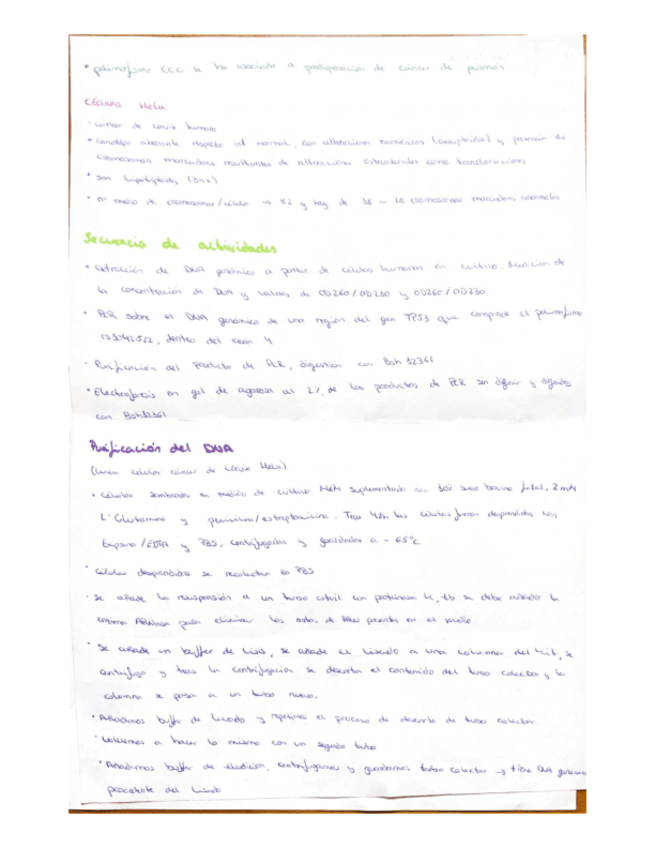 • polimorfismo CCC se ha asociado a predisposición de cáncer de pulmón
Células Hela
· cáncer de cérvix humano
• cariotipo aberrante respecto al normal, con alteraciones numéricas (aneuploidía) y presencia de
cromosomas marcadores resultantes de alteraciones estructurales como translocaciones
• son hipotriploides (3n-)
• nº medio de cromosomas/célula → 82 y hay de cromosomas marcadores anormales
Secuencia de actividades
• extracción de DNA genómico a partir de células humanas en cultivo. Medición de
la concentración de DNA y valores de OD260/OD280 y OD260/OD230.
• PCR sobre el DNA genómico de una región del gen TP53 que comprende el polimorfismo
rs1042522, dentro del exón 4
· Purificación del producto de PCR, digestión con Bsh 1236I
• Electroforesis en gel de agarosa al 2% de los productos de PCR sin digerir y digeridos
con Bsh1236I
Purificación del DNA
(línea celular cáncer de cérvix Hela)
• Células sembradas en medio de cultivo MEM suplementado con 10% suero bovino fetal, 2mM
L-Glutamina y penicilina/estreptomicina. Tras 48h las células fueron desprendidas con
tripsina/EDTA y PBS, centrifugadas y guardadas a -65ºC
• células desprendidas se recolectan en PBS
· se añade la resuspensión a un tubo estéril con proteinasa K, tb se debe añadir la
enzima RNasa para eliminar los restos de RNA presentes en el
• Se añade un buffer de lisis, se añade el lisado a una columna del kit, se
centrifuga y tras la centrifugación se descarta el contenido del tubo colector y la
columna se pasa a un tubo nuevo.
• Añadimos buffer de lavado y repetimos el proceso de descarte de tubo colector.
· volvemos a hacer lo mismo con un segundo tubo
• Añadimos buffer de elución, centrifugamos y guardamos tubo colector → tiene DNA genómico
procedente del lisado